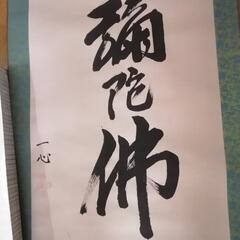 彌陀佛
一心